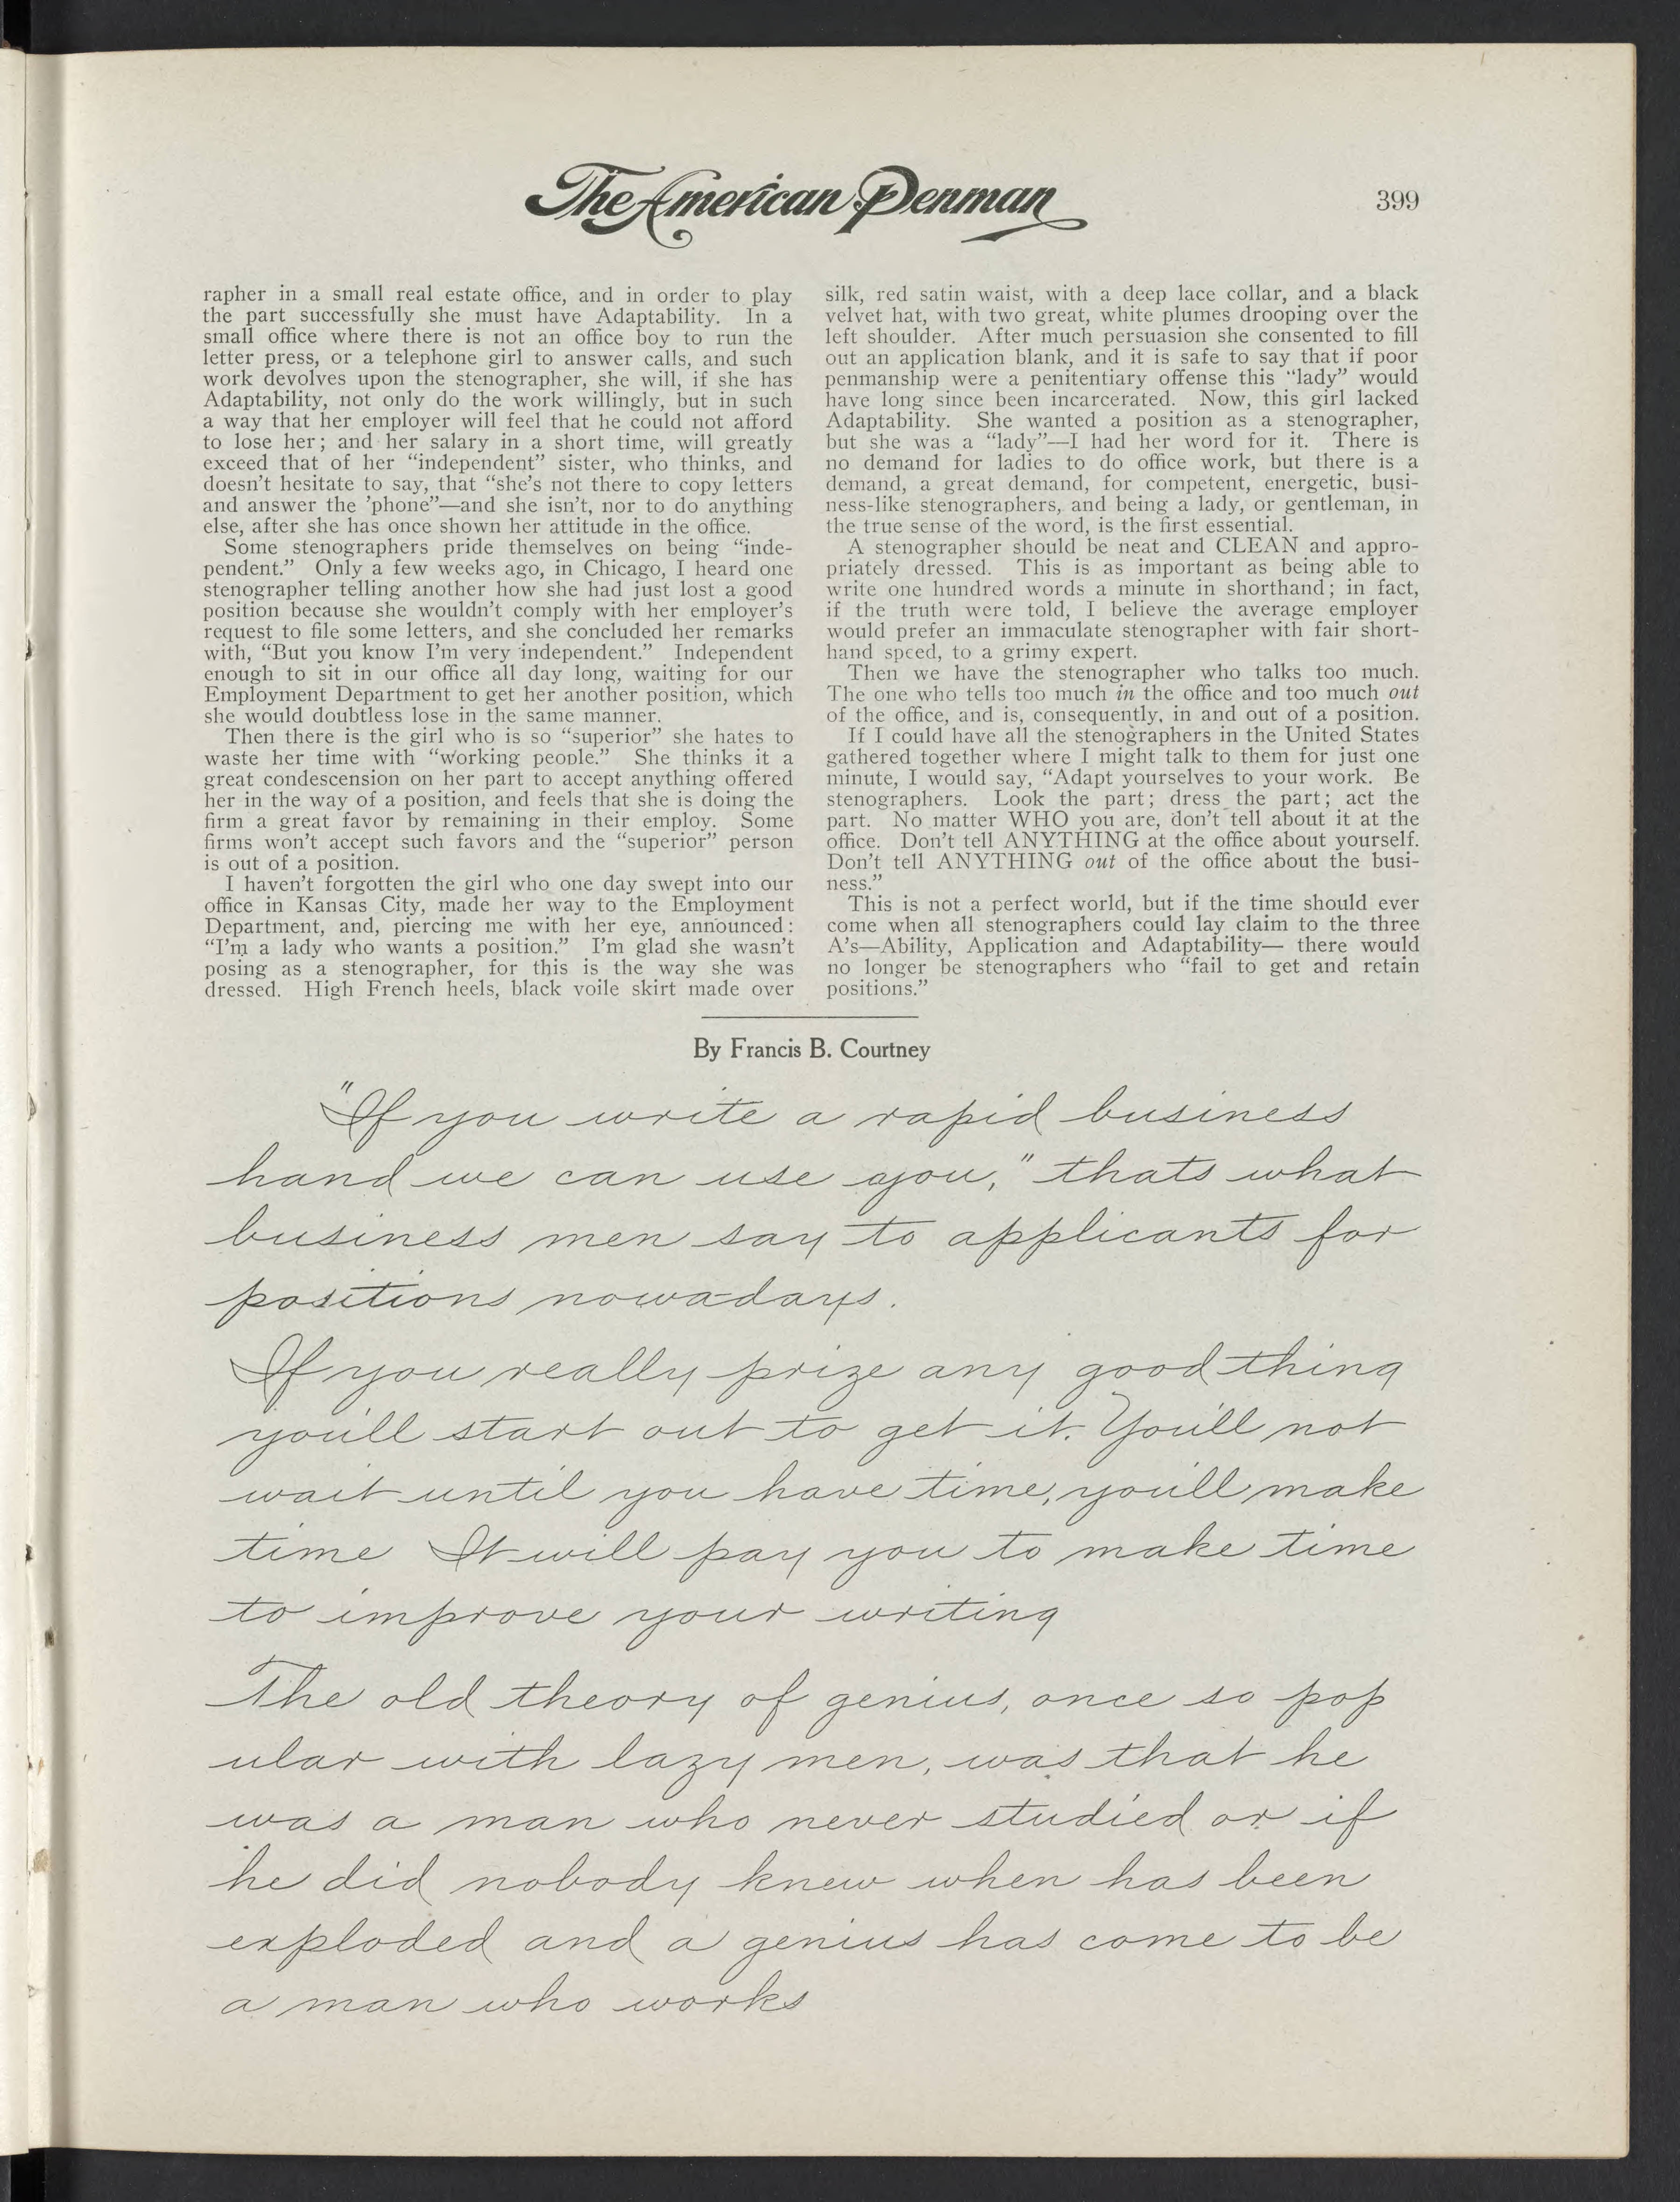 The American Penman
399
rapher in a small real estate office, and in order to play
the part successfully she must have Adaptability. In a
small office where there is not an office boy to run the
letter press, or a telephone girl to answer calls, and such
work devolves upon the stenographer, she will, if she has
Adaptability, not only do the work willingly, but in such
a way that her employer will feel that he could not afford
to lose her; and her salary in a short time, will greatly
exceed that of her “independent” sister, who thinks, and
doesn’t hesitate to say, that “she’s not there to copy letters
and answer the ’phone”—and she isn’t, nor to do anything
else, after she has once shown her attitude in the office.
Some stenographers pride themselves on being “inde-
pendent.” Only a few weeks ago, in Chicago, I heard one
stenographer telling another how she had just lost a good
position because she wouldn’t comply with her employer’s
request to file some letters, and she concluded her remarks
with, “But you know I’m very independent.” Independent
enough to sit in our office all day long, waiting for our
Employment Department to get her another position, which
she would doubtless lose in the same manner.
Then there is the girl who is so “superior” she hates to
waste her time with “working people.” She thinks it a
great condescension on her part to accept anything offered
her in the way of a position, and feels that she is doing the
firm a great favor by remaining in their employ. Some
firms won’t accept such favors and the “superior” person
is out of a position.
I haven’t forgotten the girl who one day swept into our
office in Kansas City, made her way to the Employment
Department, and, piercing me with her eye, announced:
“I’m a lady who wants a position.” I’m glad she wasn’t
posing as a stenographer, for this is the way she was
dressed. High French heels, black voile skirt made over
silk, red satin waist, with a deep lace collar, and a black
velvet hat, with two great, white plumes drooping over the
left shoulder. After much persuasion she consented to fill
out an application blank, and it is safe to say that if poor
penmanship were a penitentiary offense this “lady” would
have long since been incarcerated. Now, this girl lacked
Adaptability. She wanted a position as a stenographer,
but she was a “lady”—I had her word for it. There is
no demand for ladies to do office work, but there is a
demand, a great demand, for competent, energetic, busi-
ness-like stenographers, and being a lady, or gentleman, in
the true sense of the word, is the first essential.
A stenographer should be neat and CLEAN and appro-
priately dressed. This is as important as being able to
write one hundred words a minute in shorthand; in fact,
if the truth were told, I believe the average employer
would prefer an immaculate stenographer with fair short-
hand speed, to a grimy expert.
Then we have the stenographer who talks too much.
The one who tells too much in the office and too much out
of the office, and is, consequently, in and out of a position.
If I could have all the stenographers in the United States
gathered together where I might talk to them for just one
minute, I would say, “Adapt yourselves to your work. Be
stenographers. Look the part; dress the part; act the
part. No matter WHO you are, don’t tell about it at the
office. Don’t tell ANYTHING at the office about yourself.
Don’t tell ANYTHING out of the office about the busi-
ness.”
This is not a perfect world, but if the time should ever
come when all stenographers could lay claim to the three
A’s—Ability, Application and Adaptability— there would
no longer be stenographers who “fail to get and retain
positions.”
By Francis B. Courtney
"If you write a rapid business
hand we can use you," thats what
business men say to applicants for
positions nowa-days.
If you really prize any good thing
you'll start out to get it. You'll not
wait until you have time, you'll make
time It will pay you to make time
to improve your writing
The old theory of genius, once so pop
ular with lazy men, was that he
was a man who never studied or if
he did nobody knew when has been
exploded and a genius has come to be
a man who works